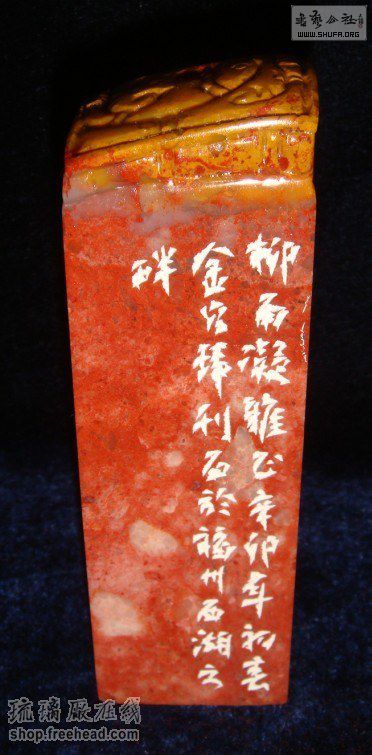 書藝公社
WWW.SHUFA.ORG
柳雨凝雅正辛卯年初春
金刊石於福州西湖之
畔
琉璃厰在线
shop.freehead.com